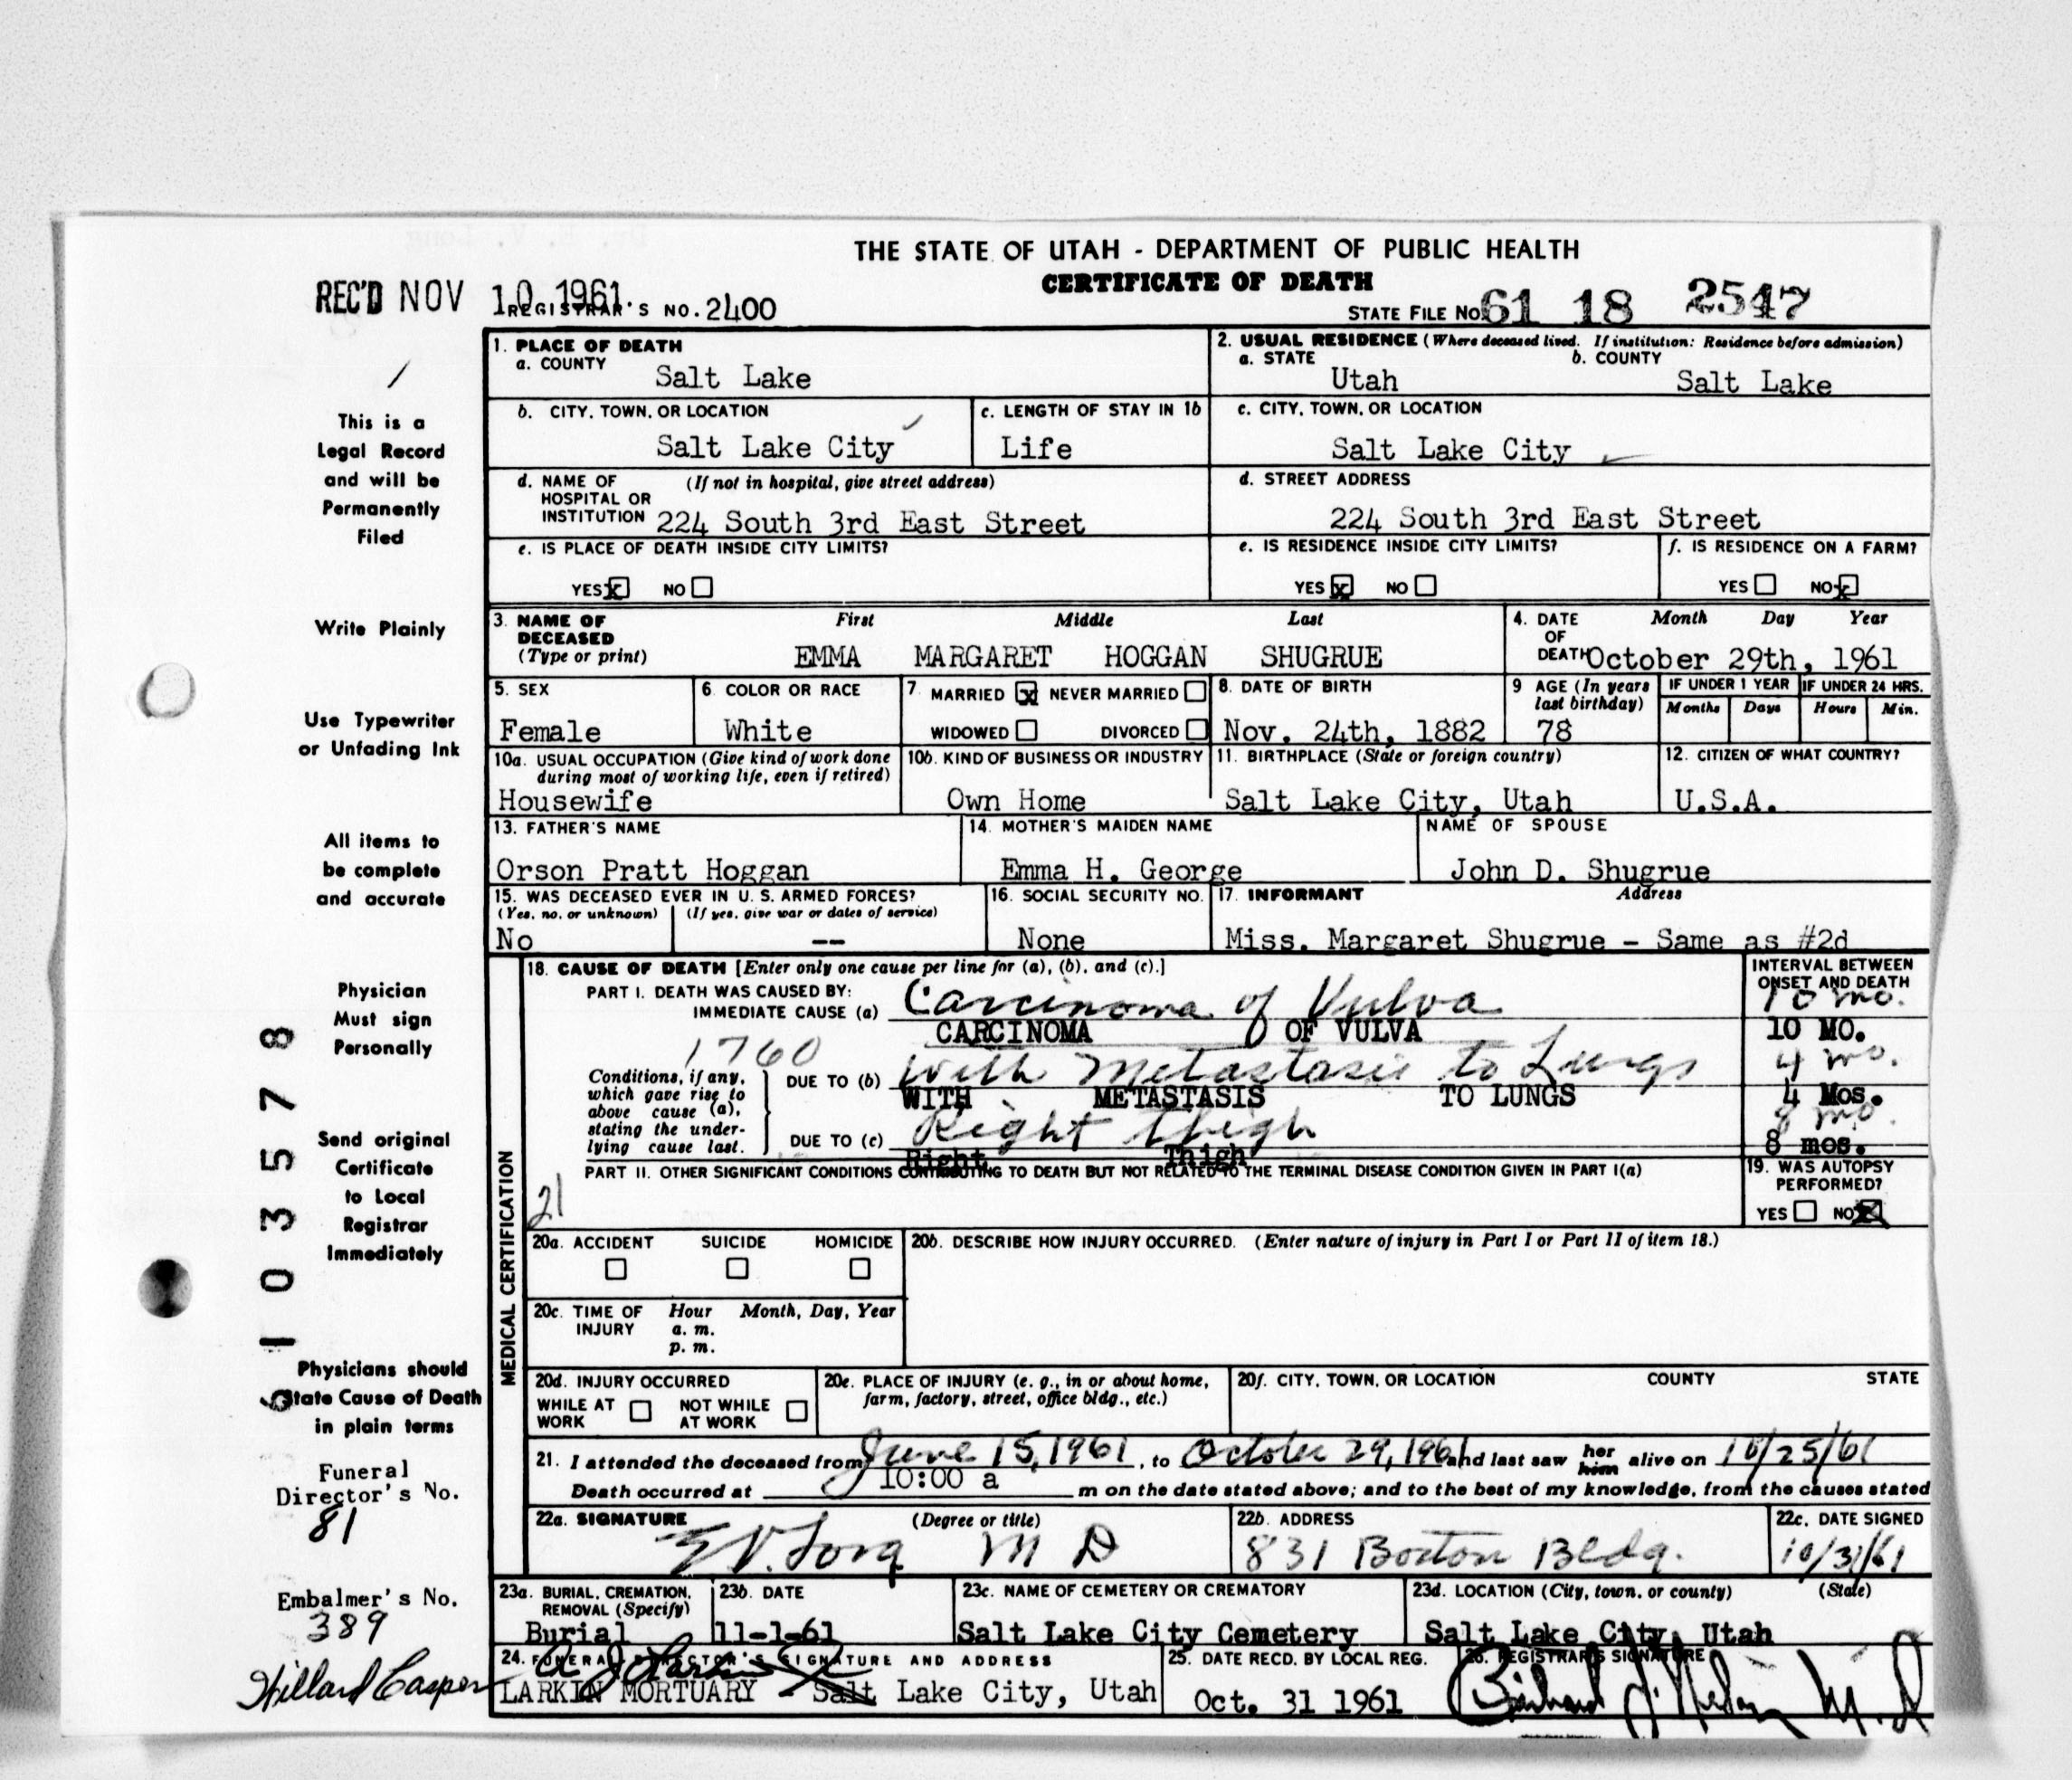 THE STATE OF UTAH - DEPARTMENT OF PUBLIC HEALTH
CERTIFICATE OF DEATH
REC'D NOV 10 1961
REGISTRAR'S NO. 2400
STATE FILE NO. 61 18 2547
This is a
Legal Record
and will be
Permanently
Filed
Write Plainly
Use Typewriter
or Unfading Ink
All items to
be complete
and accurate
Physician
Must sign
Personally
Send original
Certificate
to Local
Registrar
Immediately
Physicians should
State Cause of Death
in plain terms
Funeral
Director's No.
81
Embalmer's No.
389
Hillard Casper
1. PLACE OF DEATH
a. COUNTY
Salt Lake
2. USUAL RESIDENCE (Where deceased lived. If institution: Residence before admission)
a. STATE b. COUNTY
Utah Salt Lake
b. CITY, TOWN, OR LOCATION
Salt Lake City
c. LENGTH OF STAY IN 1b
Life
c. CITY, TOWN, OR LOCATION
Salt Lake City
d. NAME OF (If not in hospital, give street address)
HOSPITAL OR
INSTITUTION 224 South 3rd East Street
d. STREET ADDRESS
224 South 3rd East Street
e. IS PLACE OF DEATH INSIDE CITY LIMITS?
YES x NO
e. IS RESIDENCE INSIDE CITY LIMITS?
YES x NO
f. IS RESIDENCE ON A FARM?
YES NO x
3. NAME OF DECEASED (Type or print)
First Middle Last
EMMA MARGARET HOGGAN SHUGRUE
4. DATE OF DEATH Month Day Year
October 29th, 1961
5. SEX
Female
6. COLOR OR RACE
White
7. MARRIED x NEVER MARRIED
WIDOWED DIVORCED
8. DATE OF BIRTH
Nov. 24th, 1882
9 AGE (In years last birthday)
78
IF UNDER 1 YEAR
Months Days
IF UNDER 24 HRS.
Hours Min.
10a. USUAL OCCUPATION (Give kind of work done
during most of working life, even if retired)
Housewife
10b. KIND OF BUSINESS OR INDUSTRY
Own Home
11. BIRTHPLACE (State or foreign country)
Salt Lake City, Utah
12. CITIZEN OF WHAT COUNTRY?
U.S.A.
13. FATHER'S NAME
Orson Pratt Hoggan
14. MOTHER'S MAIDEN NAME
Emma H. George
NAME OF SPOUSE
John D. Shugrue
15. WAS DECEASED EVER IN U. S. ARMED FORCES?
(Yes, no, or unknown) (If yes, give war or dates of service)
No --
16. SOCIAL SECURITY NO.
None
17. INFORMANT Address
Miss. Margaret Shugrue - Same as #2d
MEDICAL CERTIFICATION
18. CAUSE OF DEATH [Enter only one cause per line for (a), (b), and (c).]
INTERVAL BETWEEN
ONSET AND DEATH
PART I. DEATH WAS CAUSED BY:
IMMEDIATE CAUSE (a) Carcinoma of Vulva 10 mo.
CARCINOMA OF VULVA 10 MO.
1760
Conditions, if any,
which gave rise to
above cause (a),
stating the under-
lying cause last.
DUE TO (b) With Metastasis to Lungs 4 mo.
WITH METASTASIS TO LUNGS 4 Mos.
DUE TO (c) Right thigh 8 mo.
Right Thigh 8 mos.
PART II. OTHER SIGNIFICANT CONDITIONS CONTRIBUTING TO DEATH BUT NOT RELATED TO THE TERMINAL DISEASE CONDITION GIVEN IN PART I(a)
21
19. WAS AUTOPSY
PERFORMED?
YES NO x
20a. ACCIDENT SUICIDE HOMICIDE
20b. DESCRIBE HOW INJURY OCCURRED. (Enter nature of injury in Part I or Part II of item 18.)
20c. TIME OF INJURY Hour Month, Day, Year
a. m.
p. m.
20d. INJURY OCCURRED
WHILE AT WORK NOT WHILE AT WORK
20e. PLACE OF INJURY (e. g., in or about home,
farm, factory, street, office bldg., etc.)
20f. CITY, TOWN, OR LOCATION COUNTY STATE
21. I attended the deceased from June 15, 1961, to October 29, 1961 and last saw her him alive on 10/25/61
Death occurred at 10:00 a m on the date stated above; and to the best of my knowledge, from the causes stated
22a. SIGNATURE (Degree or title)
E V. Long M D
22b. ADDRESS
831 Boston Bldg.
22c. DATE SIGNED
10/31/61
23a. BURIAL, CREMATION,
REMOVAL (Specify)
Burial
23b. DATE
11-1-61
23c. NAME OF CEMETERY OR CREMATORY
Salt Lake City Cemetery
23d. LOCATION (City, town, or county) (State)
Salt Lake City, Utah
24. FUNERAL DIRECTOR'S SIGNATURE AND ADDRESS
LARKIN MORTUARY - Salt Lake City, Utah
25. DATE RECD. BY LOCAL REG.
Oct. 31 1961
26. REGISTRAR'S SIGNATURE
6103578